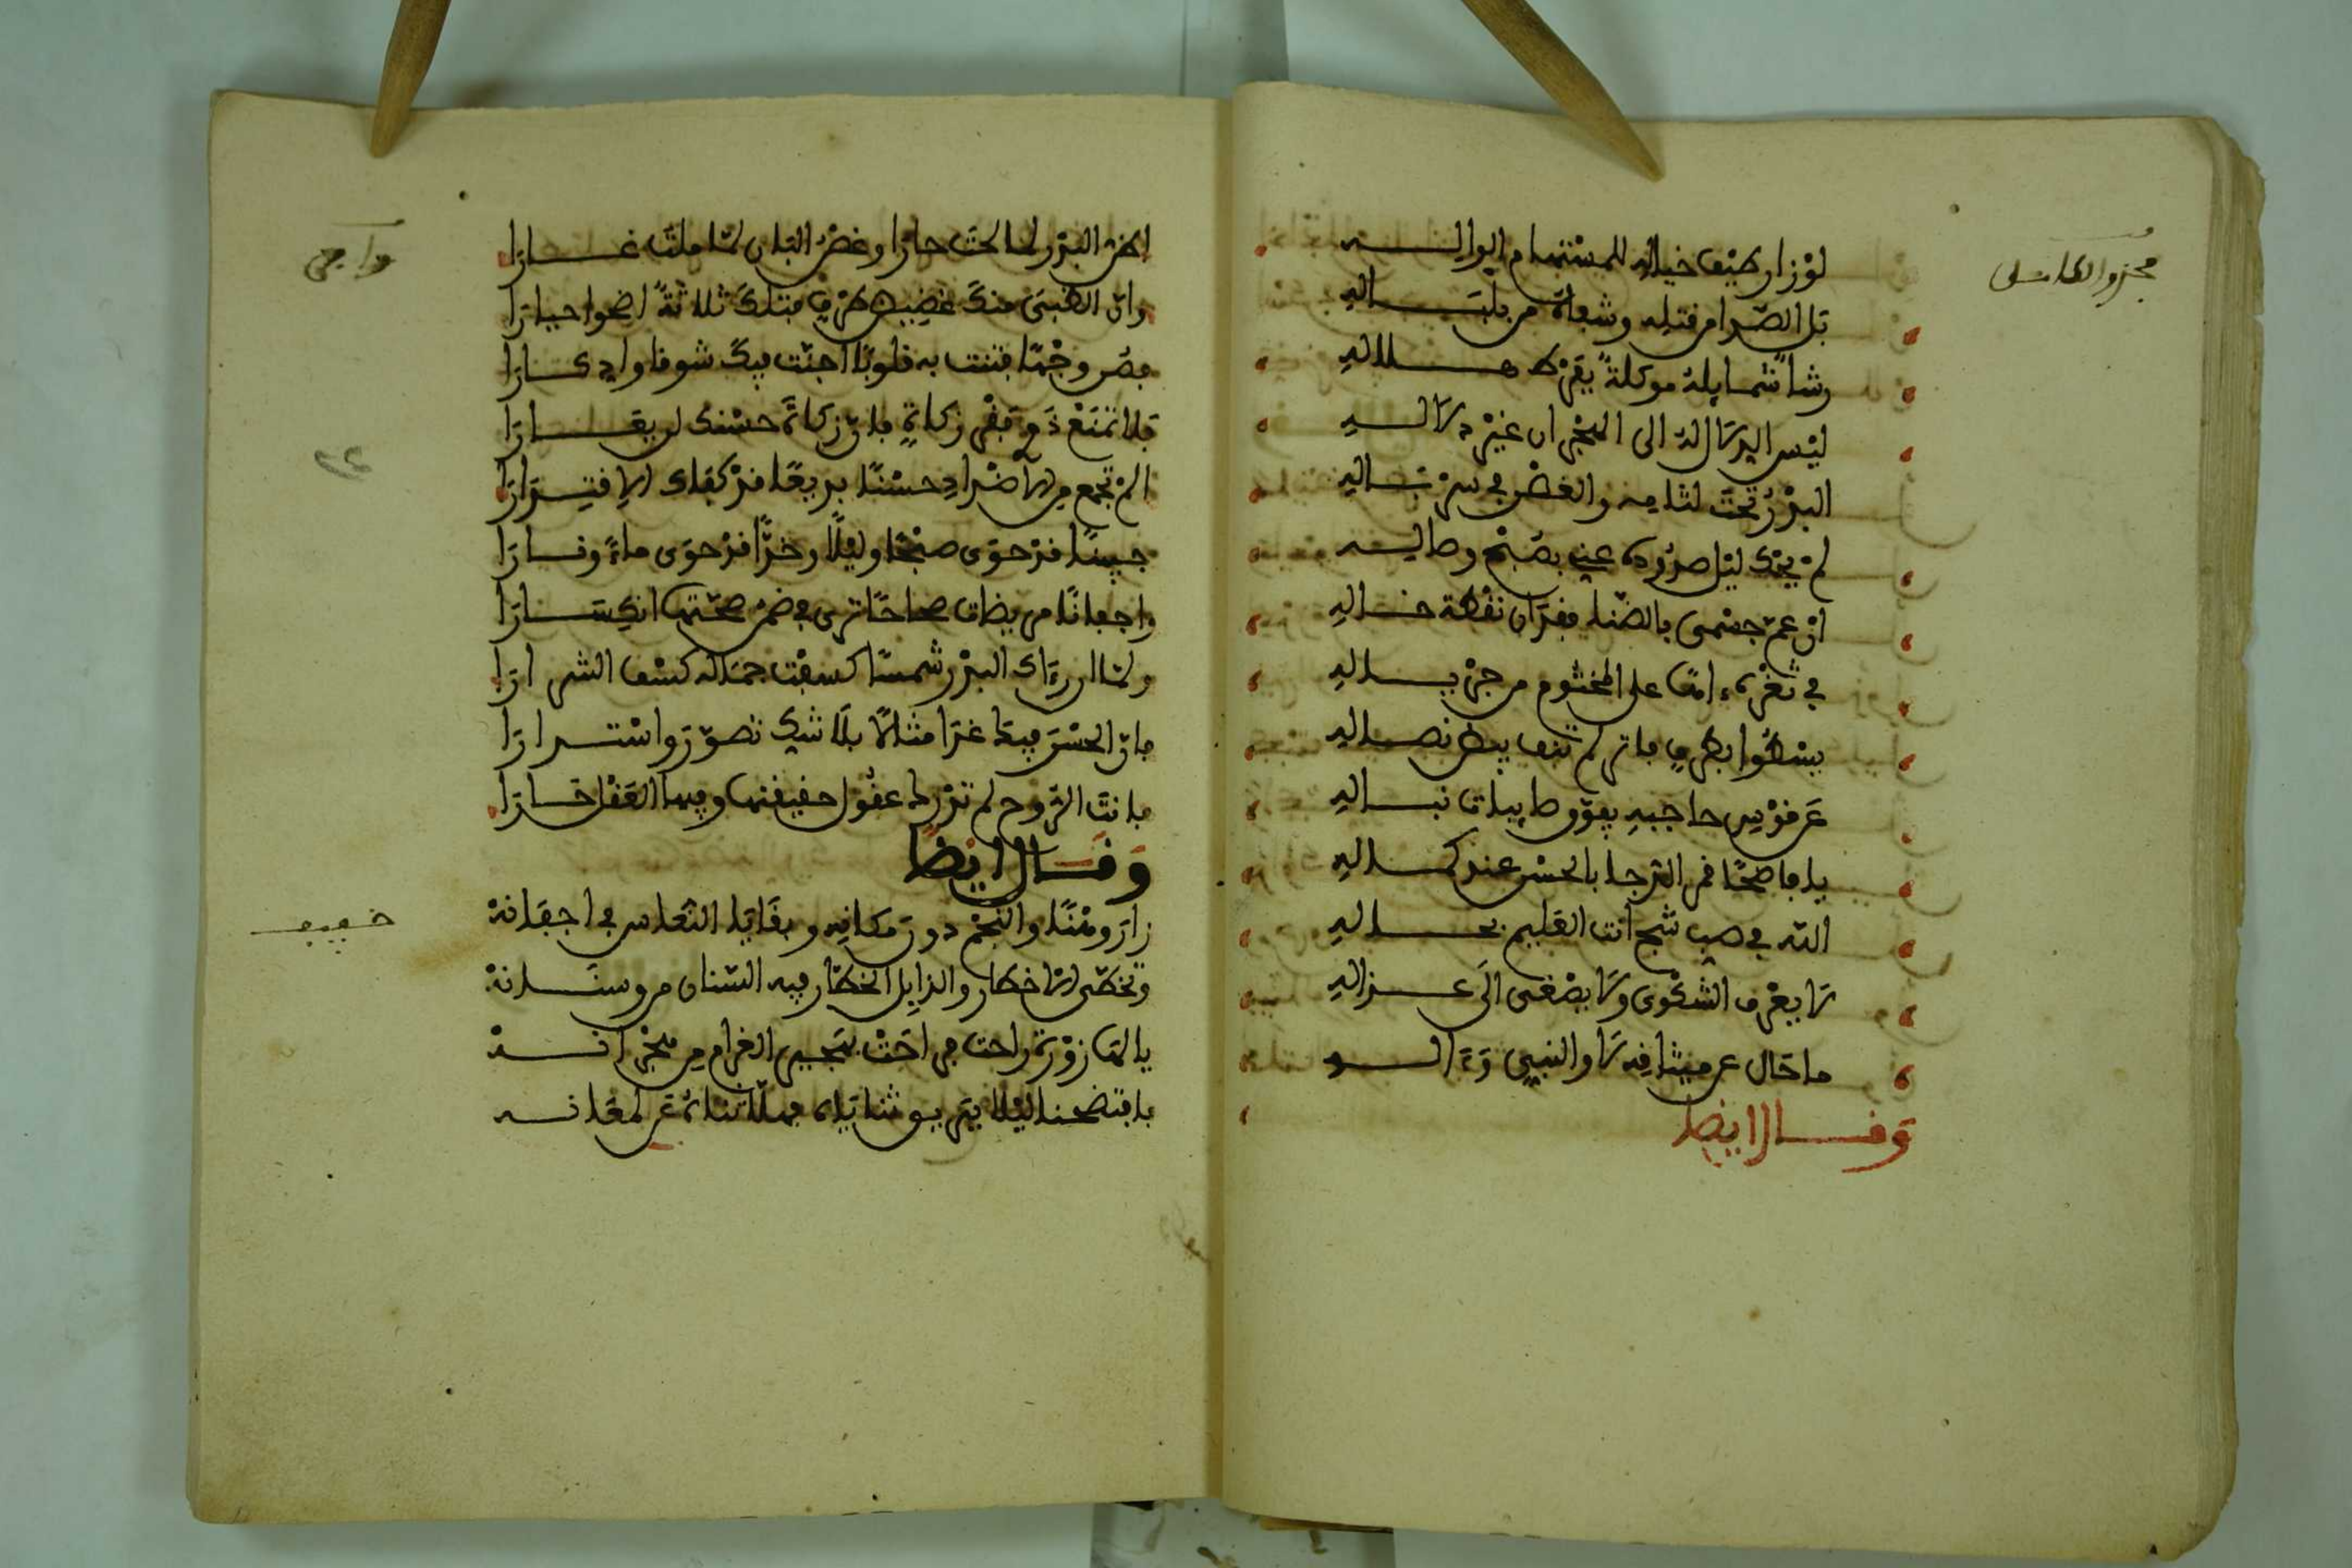 مجزو الكامل
لوْ زار طيْف خياله للمستهام الواله
بل الصدا من قتله وشفاه من بلباله
رشا شمايله موكلة بفرط دلاله
ليْس الدلال له الى الهجران غيْر دلاله
البدْر تحت لثامه والغصْن في سرباله
لمْ يحك ليْل صدوده عني بصبْح وصاله
انْ عم جسْمي بالضنا فقدان نقْطة خاله
في ثغْره على المختوم من جرْياله
يسْطوا بطرف فاتر لم تنب بيض نصاله
عن قوْس حاجبه يفوّق صايبات نباله
يا فاضحًا قمر الدجا بالحسْن عند كماله
الله في صب شج أنت العليم بحاله
لا يعْرف الشكْوى ولا يصْغى الى عذاله
ما حال عن ميثاقه لا والنبي وءاله
وقال ايضا
وافر
اظن البدْر لما لحت حارا وغصْن البان لما ملت غارا
وان الظبى منك غضيض طرْف فتلك ثلاثة اضحوا حيارا
فصن وجْها فتنت به قلوبًا اجنّت فيك شوقا وادكارا
فلا تمنع ذوي فقْر زكاة فان زكاة حسْنك لن يعارا
الم تجمع من الاضْداد حسْنًا بديعًا قدْ كفاك الافتزارا
جبينًا قدْ حوى صبْحًا وليْلا وخدًّا قدْ حوى ماءً ونارا
واجفانًا مريضات صحاحًا ترى في ضمن صحتها انكسارا
ولما ان رءاك البدْر شمسًا كسفت جماله كسْف الشرارا
فان الحسْن فيها غدا مثلا بلا شك تصوّر واسْتدارا
فانت الروح لم تدْرك عقول حقيقتها وفيها العقْل حارا
وقال ايضا
خفيف
زار وهْنًا والنجْم دون مكانه وبقايا النعاس في اجفانه
وتخطّى الاخطار والذابل الخطّار فيه السنان من وسنانه
يا لها زوْرة راحت من احت بتجيى الغرام من هجْرانه
فافتضحنا ليْلا بتم بيوت ثناياه فملا ثناه عن لمعانه